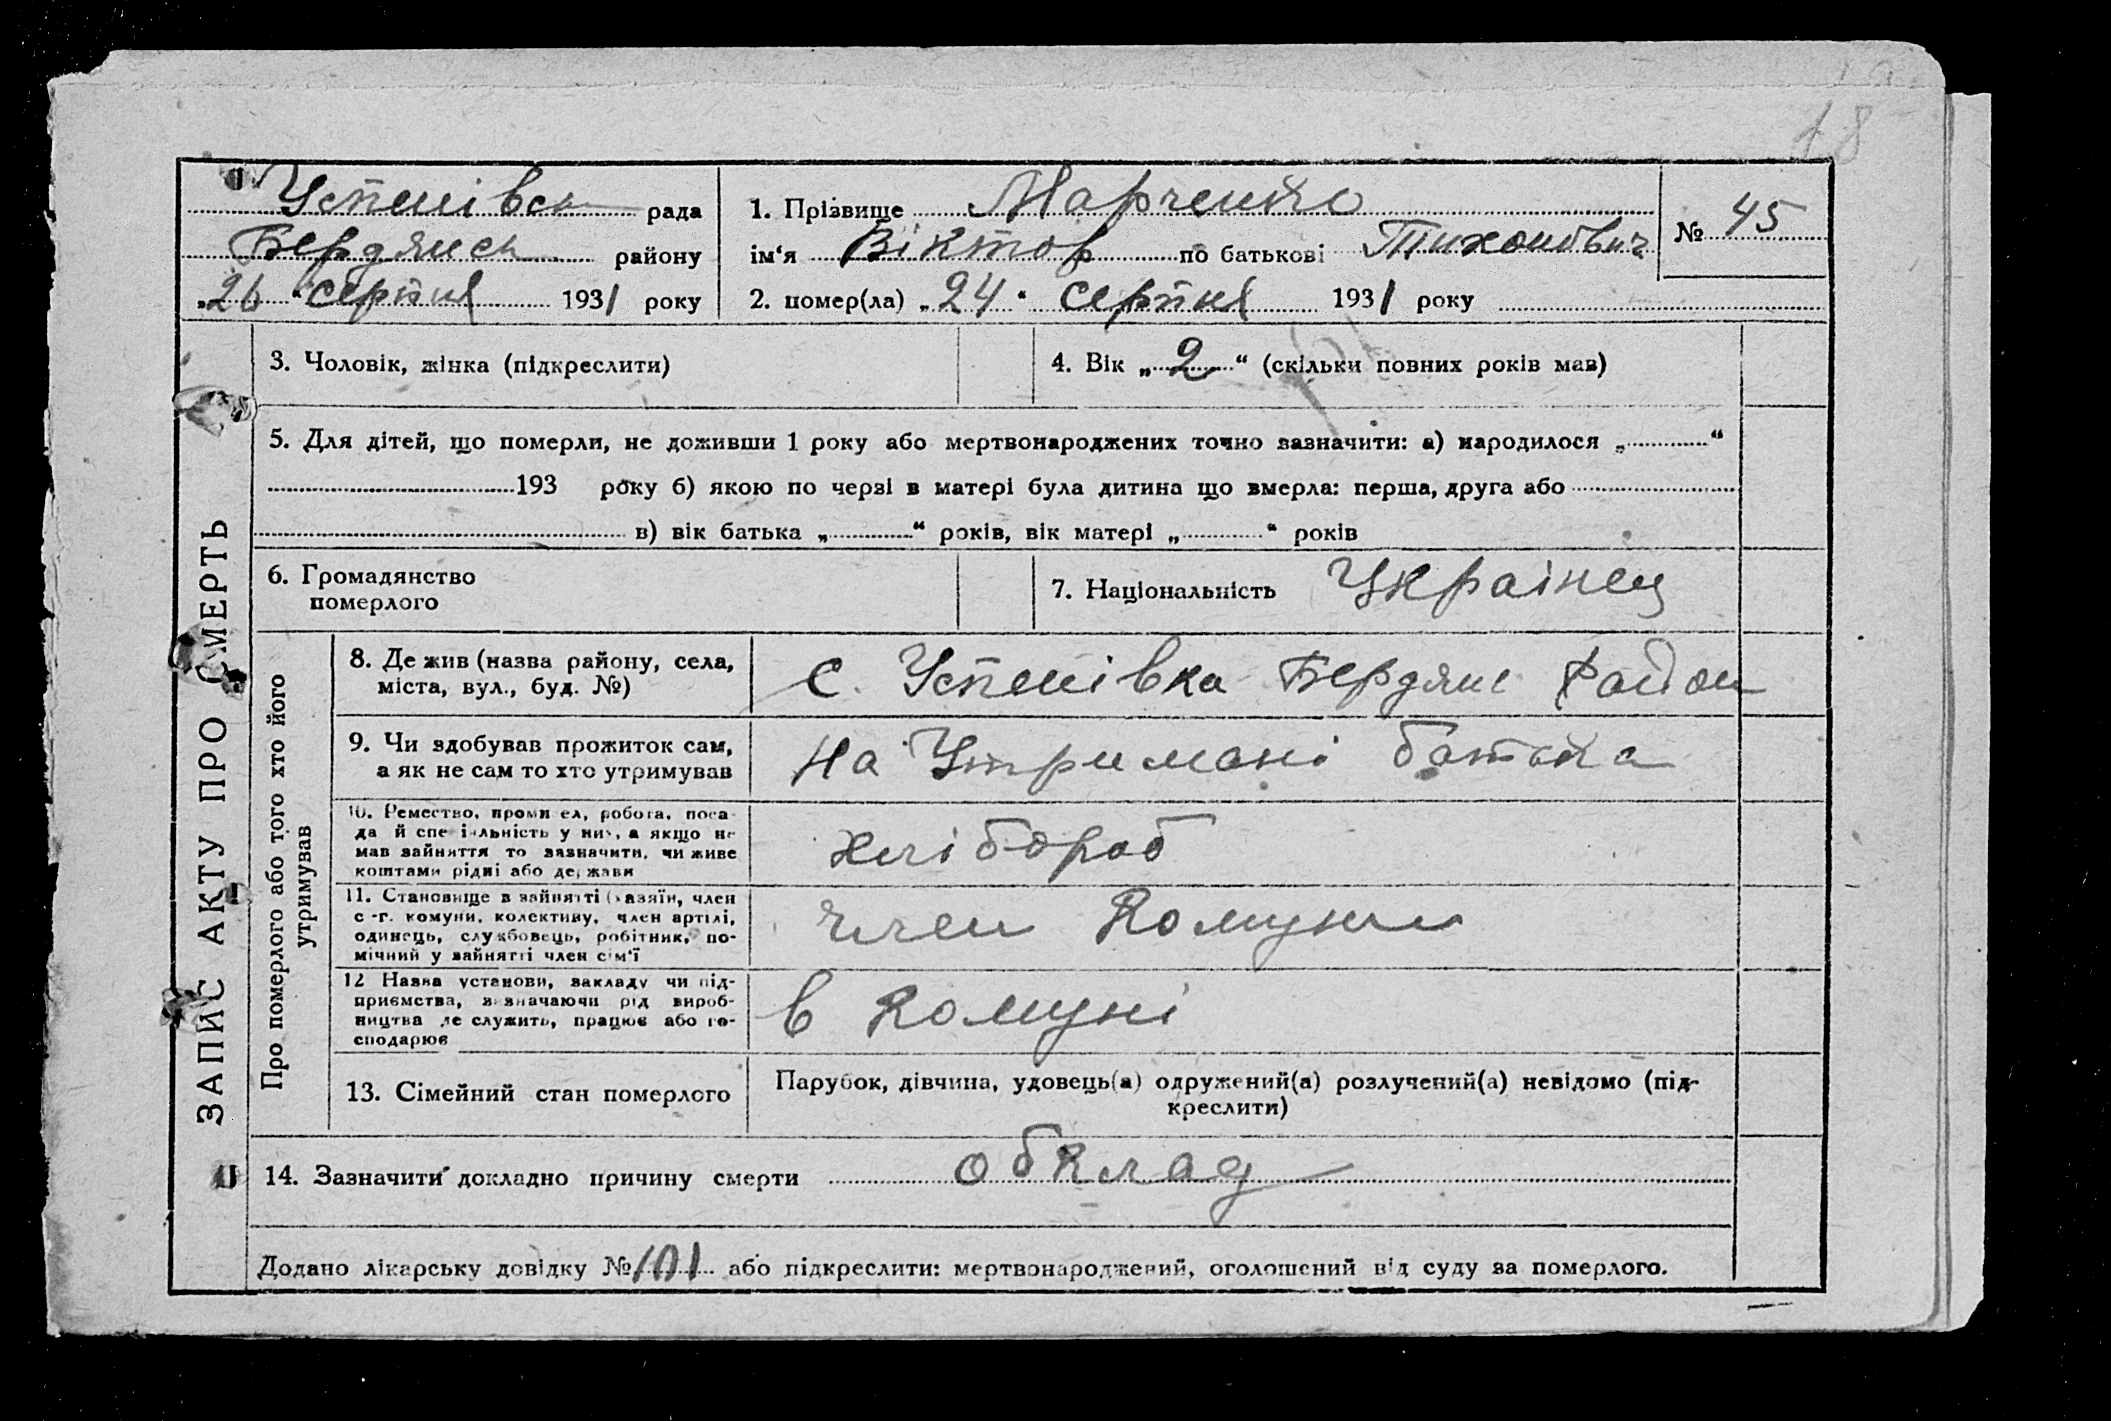 18
Успенівськ рада
Бердянськ району
„26“ серпня 1931 року
1. Прізвище Марченко
ім‘я Віктор по батькові Тихонович
№ 45
2. помер(ла) „24“ серпня 1931 року
3. Чоловік, жінка (підкреслити)
4. Вік „2“ (скільки повних років мав)
5. Для дітей, що померли, не доживши 1 року або мертвонароджених точно зазначити: а) народилося „ “
193 року б) якою по черзі в матері була дитина що вмерла: перша, друга або
в) вік батька „ “ років, вік матері „ “ років
6. Громадянство
померлого
7. Національність Українец
ЗАПИС АКТУ ПРО СМЕРТЬ
Про померлого або того хто його
утримував
8. Де жив (назва району, села,
міста, вул., буд. №)
с. Успенівка Бердянс район
9. Чи здобував прожиток сам,
а як не сам то хто утримував
на Утримані батька
10. Ремество, промисел, робота, поса-
да й спеціяльність у них, а якщо не
мав зайняття то зазначити, чи живе
коштами рідні або держави
хлібороб
11. Становище в зайнятті (хазяїн, член
с.-г. комуни, колективу, член артілі,
одинець, службовець, робітник, по-
мічний у зайнятті член сім'ї
член комуни
12 Назва установи, закладу чи під-
приємства, зазначаючи рід вироб-
ництва де служить, працює або го-
сподарює
в комуні
13. Сімейний стан померлого
Парубок, дівчина, удовець(а) одружений(а) розлучений(а) невідомо (під-
креслити)
14. Зазначити докладно причину смерти обклад
Додано лікарську довідку № 101 або підкреслити: мертвонароджений, оголошений від суду за померлого.